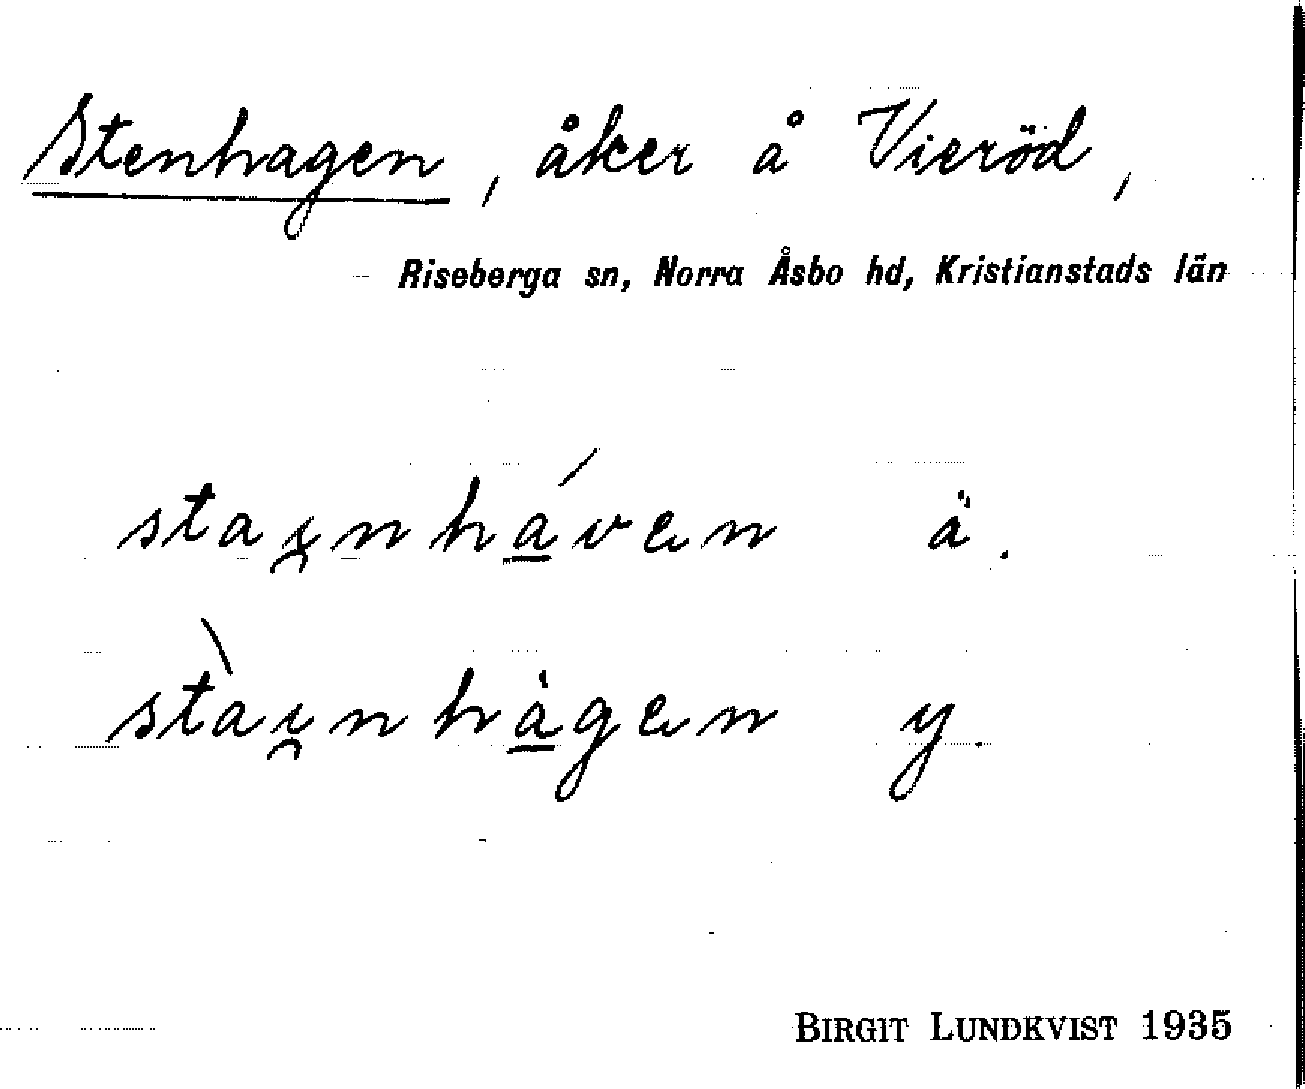 Stenhagen, åker å Vieröd,
Riseberga sn, Norra Åsbo hd, Kristianstads län
stai̯nhá̱ven ä.
stài̯nhȧ̱gen y.
BIRGIT LUNDKVIST 1935